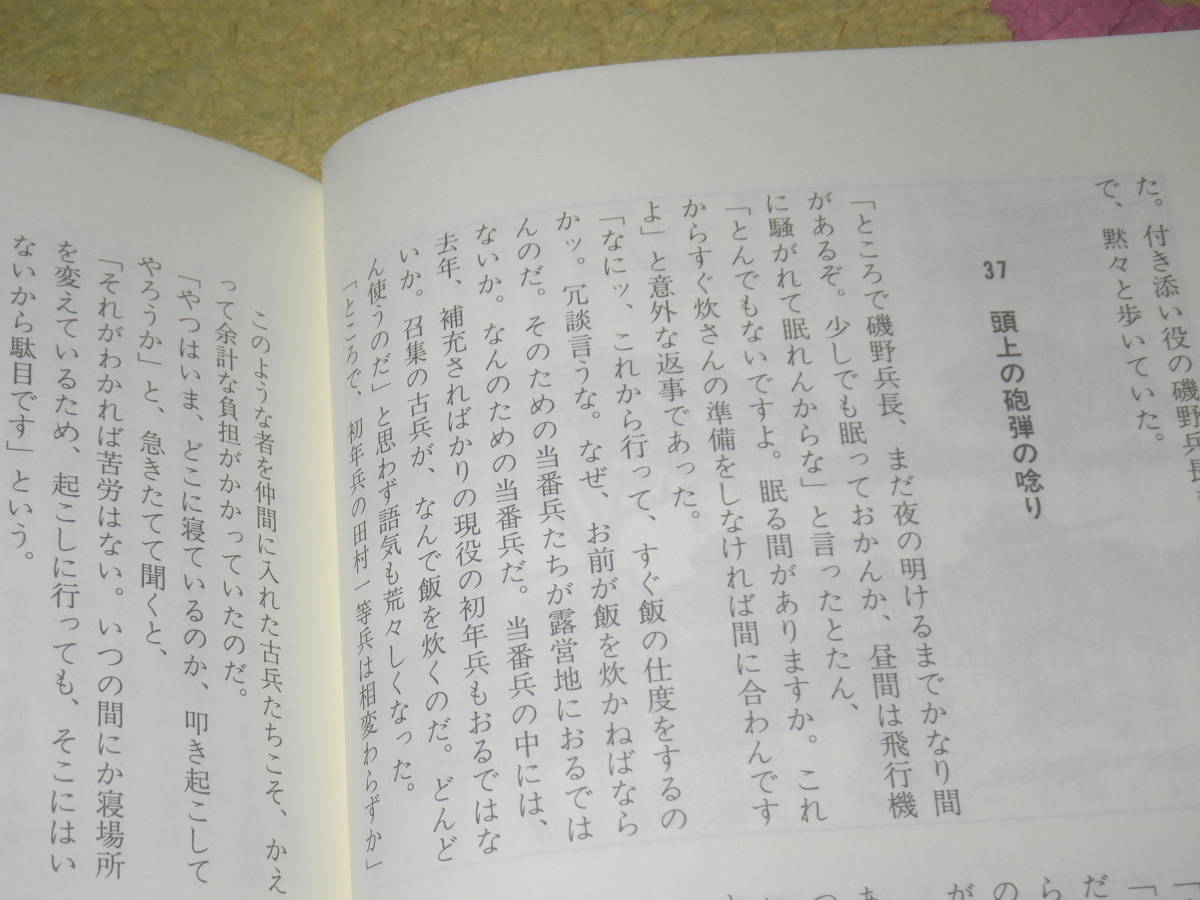 た。付き添い役の磯野兵長
で、黙々と歩いていた。
37 頭上の砲弾の唸り
「ところで磯野兵長、まだ夜の明けるまでかなり間
があるぞ。少しでも眠っておかんか、昼間は飛行機
に騒がれて眠れんからな」と言ったとたん、
「とんでもないですよ。眠る間がありますか。これ
からすぐ炊さんの準備をしなければ間に合わんです
よ」と意外な返事であった。
「なにッ、これから行って、すぐ飯の仕度をするの
かッ。冗談言うな。なぜ、お前が飯を炊かねばなら
んのだ。そのための当番兵たちが露営地におるでは
ないか。なんのための当番兵だ。当番兵の中には、
去年、補充さればかりの現役の初年兵もおるではな
いか。召集の古兵が、なんで飯を炊くのだ。どんど
ん使うのだ」と思わず語気も荒々しくなった。
「ところで、初年兵の田村一等兵は相変わらずか」
このような者を仲間に入れた古兵たちこそ、かえ
って余計な負担がかかっていたのだ。
「やつはいま、どこに寝ているのか、叩き起こして
やろうか」と、急きたてて聞くと、
「それがわかれば苦労はない。いつの間にか寝場所
を変えているため、起こしに行っても、そこにはい
ないから駄目です」という。